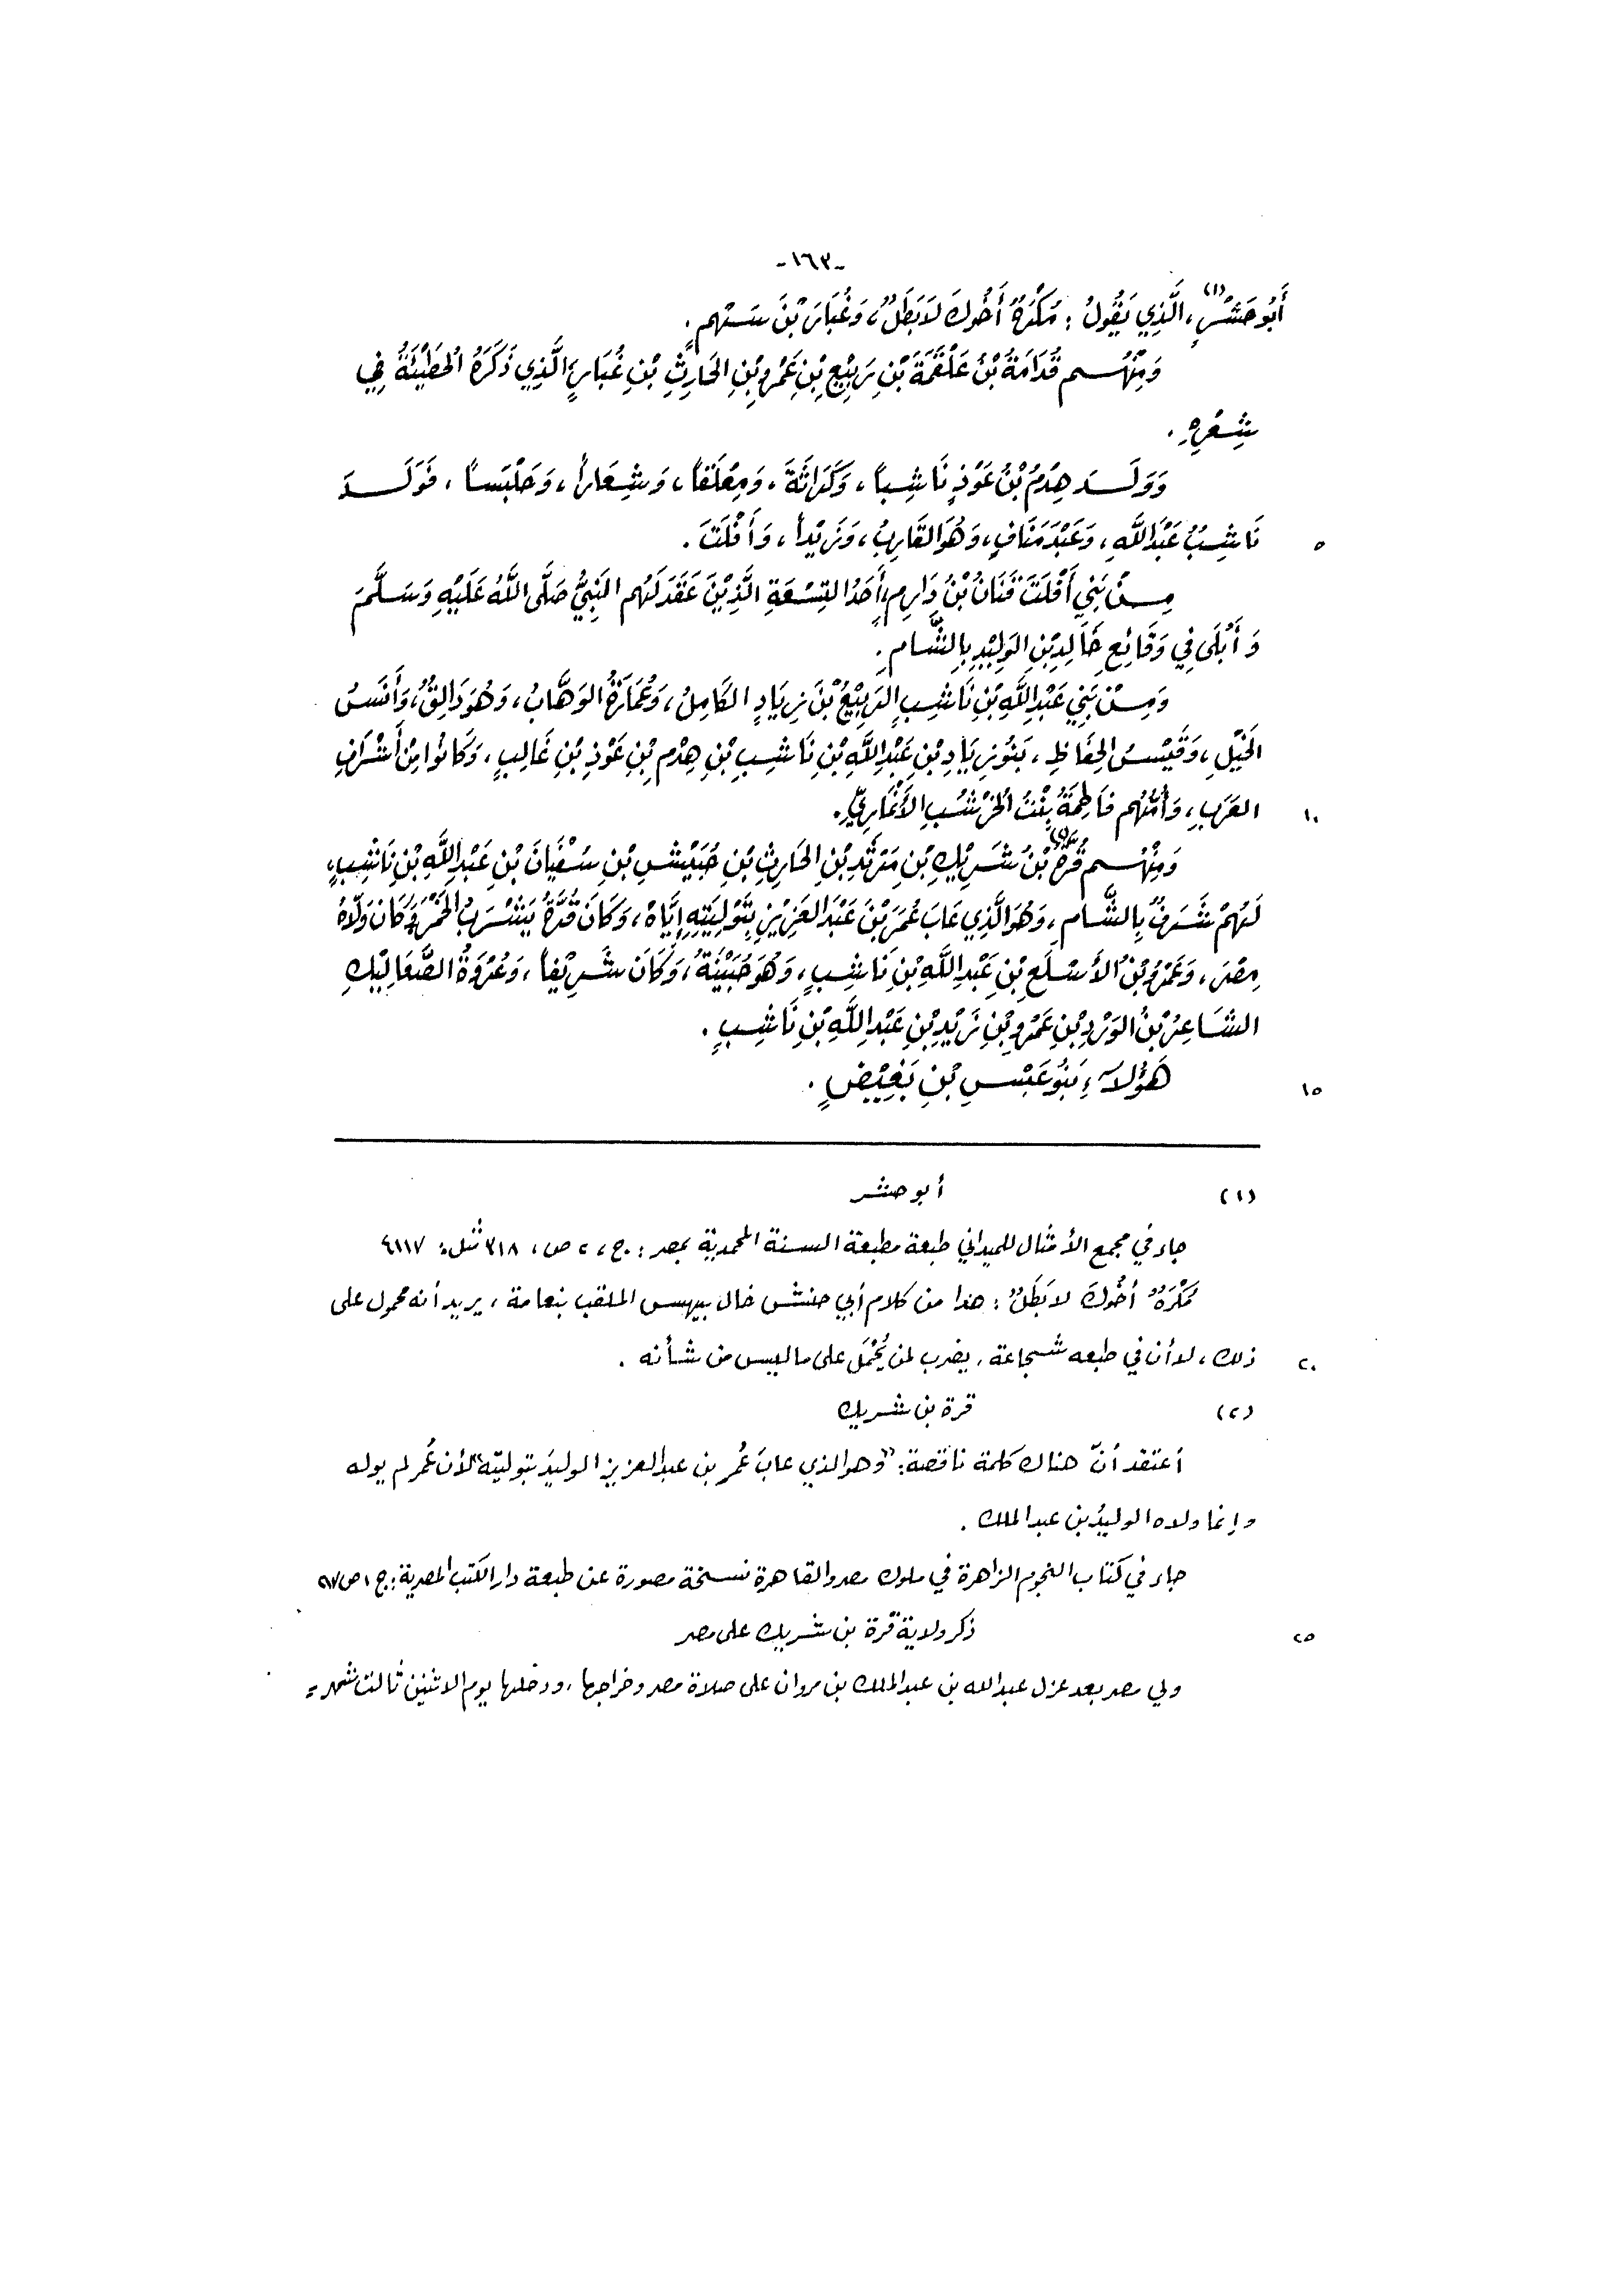 -١٦٣-
أَبُو حَشْرٍ(١)، الَّذِي يَقُولُ : مُكْرَهٌ أَخُوكَ لَا بَطَلٌ، وَغُبَارَ بْنَ سَهْمٍ.
وَمِنْهُم قُدَامَةُ بْنُ عَلْقَمَةَ بْنِ رَبِيْعِ بْنِ عَمْرِو بْنِ الحَارِثِ بْنِ غُبَارٍ، الَّذِي ذَكَرَهُ الحُطَيْئَةُ فِي
شِعْرِهِ.
وَوَلَدَ هِدْمُ بْنُ عَوْذٍ نَاشِباً، وَكَرَاثَةَ، وَمِعْلَقاً، وَشِعَاراً، وَحَلْبَساً، فَوَلَدَ
٥ نَاشِبُ عَبْدَ اللَّهِ، وَعَبْدَ مَنَافٍ، وَهُوَ القَارِبُ، وَزَيْداً، وَأَفْلَتَ.
مِنْ بَنِي أَفْلَتَ قَنَانُ بْنُ دَارِمٍ، أَحَدُ التِسْعَةِ الَّذِيْنَ عَقَدَ لَهُم النَبِيُّ صَلَّى اللَّهُ عَلَيْهِ وَسَلَّمَ
وَأَبْلَى فِي وَقَائِعِ خَالِدِ بْنِ الوَلِيْدِ بِالشَّامِ.
وَمِنْ بَنِي عَبْدِ اللَّهِ بْنِ نَاشِبٍ الرَبِيْعُ بْنُ زِيَادٍ الكَامِلُ، وَعُمَارَةُ الوَهَّابُ، وَهُوَ دَالِقٌ، وَأَنَسُ
الخَيْلِ، وَقَيْسُ الحِفَاظِ، بَنُو زِيَادِ بْنِ عَبْدِ اللَّهِ بْنِ نَاشِبِ بْنِ هِدْمِ بْنِ عَوْذِ بْنِ غَالِبٍ، وَكَانُوا مِنْ أَشْرَافِ
١٠ العَرَبِ، وَأُمُّهُم فَاطِمَةُ بِنْتُ الخُرْشُبِ الأَنْمَارِيِّ.
وَمِنْهُم قُرَّةُ(٢) بْنُ شَرِيْكِ بْنِ مَرْثَدِ بْنِ الحَارِثِ بْنِ حُبَيْشِ بْنِ سُفْيَانَ بْنِ عَبْدِ اللَّهِ بْنِ نَاشِبٍ،
لَهُمْ شَرَفٌ بِالشَّامِ، وَهُوَ الَّذِي عَابَ عُمَرَ بْنَ عَبْدِ العَزِيْزِ بِتَوْلِيَتِهِ إِيَّاهُ، وَكَانَ قُرَّةُ يَشْرَبُ الخَمْرَ وَكَانَ وَلَّاهُ
مِصْرَ، وَعَمْرُو بْنُ الأَسْلَعِ بْنِ عَبْدِ اللَّهِ بْنِ نَاشِبٍ، وَهُوَ حُبَيْنَةُ، وَكَانَ شَرِيْفاً، وَعُرْوَةُ الصَّعَالِيْكِ
الشَاعِرُ بْنُ الوَرْدِ بْنِ عَمْرِو بْنِ زَيْدِ بْنِ عَبْدِ اللَّهِ بْنِ نَاشِبٍ.
١٥ هَؤُلَاءِ بَنُو عَبْسِ بْنِ بَغِيْضٍ.
(١) أبو حشر
جاء في مجمع الأمثال للميداني طبعة مطبعة السنة المحمدية بمصر: ج، ٢ ص، ٣١٨ مثل: ٤١١٧
مُكْرَهٌ أخُوكَ لا بَطَلٌ : هذا من كلام أبي حنش خال بيهس الملقب بنعامة، يريد أنه محمول على
٢٠ ذلك، لا أن في طبعه شجاعة، يضرب لمن يُحْمَل على ما ليس من شأنه.
(٢) قرة بن شريك
أعتقد أنّ هناك كلمة ناقصة: «وهو الذي عابَ عُمر بن عبد العزيز الوليدَ بتوليته» لأن عُمر لم يوله
وإنما ولاه الوليدُ بن عبد الملك.
جاء في كتاب النجوم الزاهرة في ملوك مصر والقاهرة نسخة مصورة عن طبعة دار الكتب المصرية: ج ١ ص
٢٥ ذكر ولاية قرة بن شريك على مصر
ولي مصر بعد عزل عبد الله بن عبد الملك بن مروان على صلاة مصر وخراجها، ودخلها يوم الاثنين ثالث شهر =